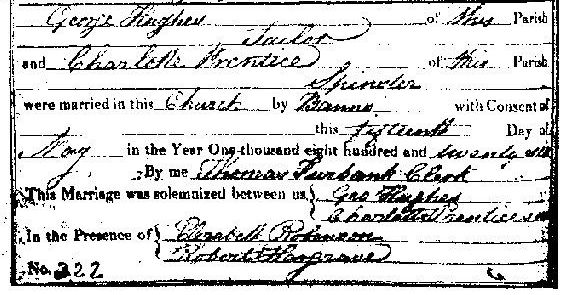 George Hughes of this Parish
Tailor
and Charlotte Prentice of this Parish
Spinster
were married in this Church by Banns with Consent of
this fifteenth Day of
May in the Year One thousand eight hundred and twenty six
By me Thomas Furbank Clerk
This Marriage was solemnized between us, Geo Hughes
Charlotte Prentice
In the Presence of Elizabeth Robinson
Robert Hargrave
No. 222